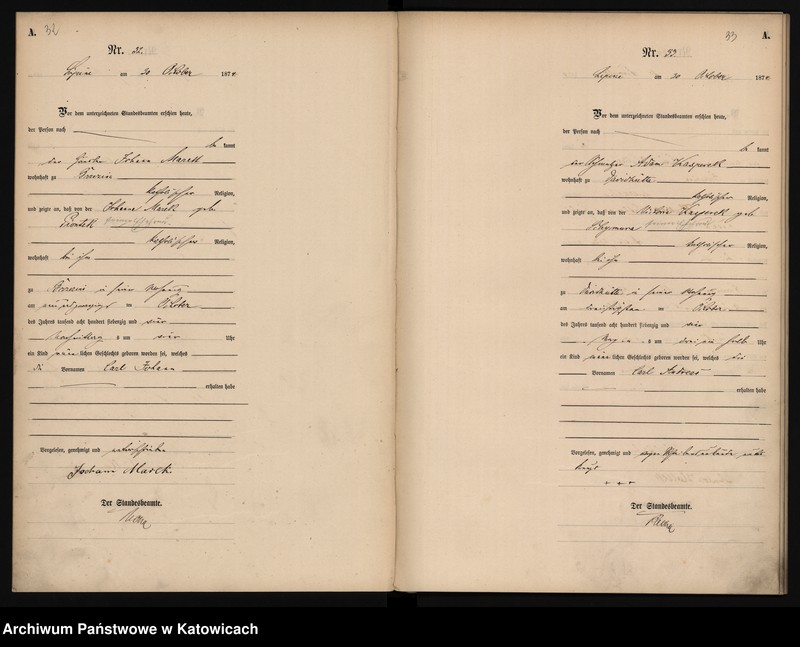 A. 32
Nr. 32.
Lipine am 30 Oktober 1874
Vor dem unterzeichneten Standesbeamten erschien heute,
der Person nach
be kannt
der Johann
wohnhaft zu
katholischer Religion,
und zeigte an, daß von der Johanna geb.
Piontek
katholischer Religion,
wohnhaft bei ihm
zu in seiner Wohnung
am neunundzwanzigsten ten Oktober
des Jahres tausend acht hundert siebenzig und vier
Nachmittag s um vier Uhr
ein Kind männ lichen Geschlechts geboren worden sei, welches
die Vornamen Carl Johann
erhalten habe
Vorgelesen, genehmigt und unterschrieben
Johann Marek.
Der Standesbeamte.
33 A.
Nr. 33
Lipine am 30 Oktober 1874
Vor dem unterzeichneten Standesbeamten erschien heute,
der Person nach
be kannt
der Adam Kasperek
wohnhaft zu Davidhütte
katholischer Religion,
und zeigte an, daß von der Kasperek geb
katholischer Religion,
wohnhaft bei ihm
zu Davidhütte in seiner Wohnung
am dreißigsten ten Oktober
des Jahres tausend acht hundert siebenzig und vier
Morgen s um drei ein halb Uhr
ein Kind männ lichen Geschlechts geboren worden sei, welches die
Vornamen Carl Andreas
erhalten habe
Vorgelesen, genehmigt und wegen
+ + +
Der Standesbeamte.
Archiwum Państwowe w Katowicach